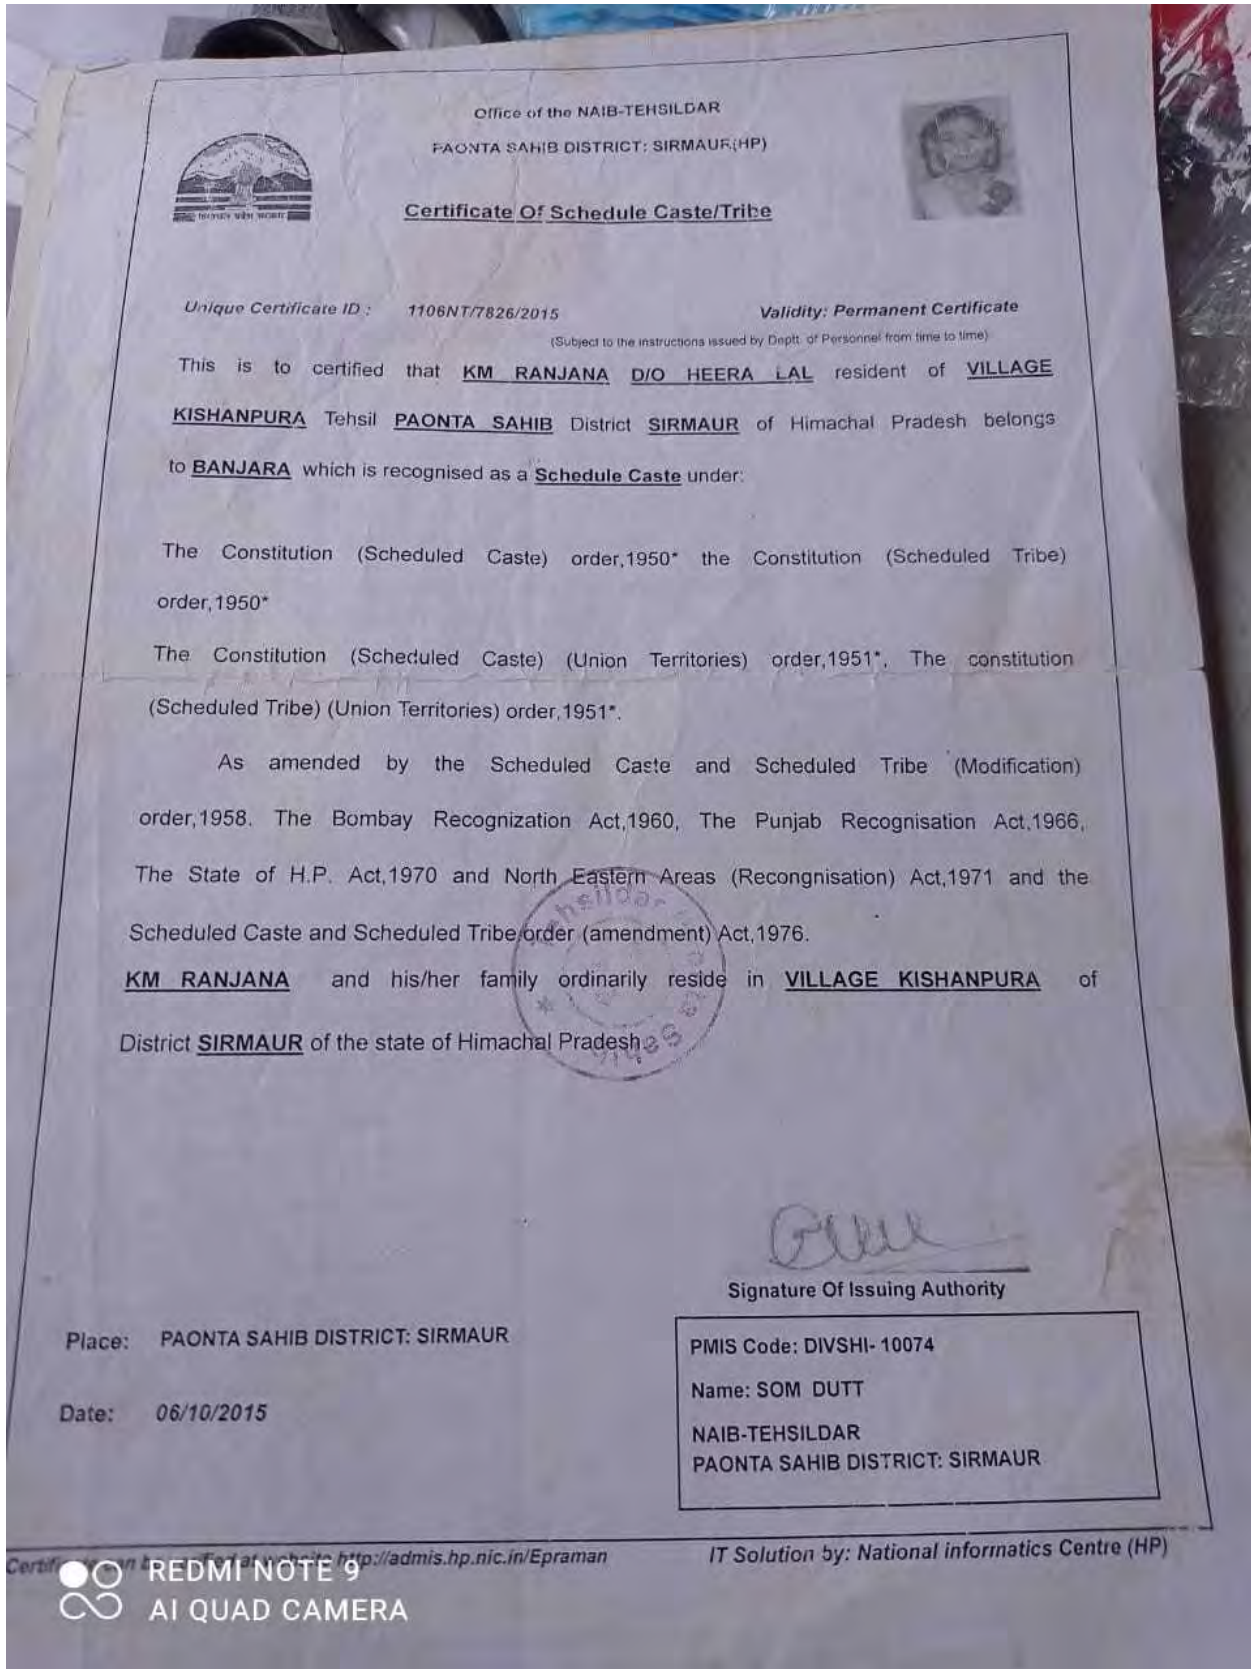 Office of the NAIB-TEHSILDAR
PAONTA SAHIB DISTRICT: SIRMAUR(HP)
Certificate Of Schedule Caste/Tribe
Unique Certificate ID : 1106NT/7826/2015 Validity: Permanent Certificate
(Subject to the instructions issued by Deptt. of Personnel from time to time)
This is to certified that KM RANJANA D/O HEERA LAL resident of VILLAGE
KISHANPURA Tehsil PAONTA SAHIB District SIRMAUR of Himachal Pradesh belongs
to BANJARA which is recognised as a Schedule Caste under:
The Constitution (Scheduled Caste) order,1950* the Constitution (Scheduled Tribe)
order,1950*
The Constitution (Scheduled Caste) (Union Territories) order,1951*, The constitution
(Scheduled Tribe) (Union Territories) order,1951*.
As amended by the Scheduled Caste and Scheduled Tribe (Modification)
order,1958. The Bombay Recognization Act,1960, The Punjab Recognisation Act,1966,
The State of H.P. Act,1970 and North Eastern Areas (Recongnisation) Act,1971 and the
Scheduled Caste and Scheduled Tribe order (amendment) Act,1976.
KM RANJANA and his/her family ordinarily reside in VILLAGE KISHANPURA of
District SIRMAUR of the state of Himachal Pradesh
Signature Of Issuing Authority
Place: PAONTA SAHIB DISTRICT: SIRMAUR
Date: 06/10/2015
PMIS Code: DIVSHI- 10074
Name: SOM DUTT
NAIB-TEHSILDAR
PAONTA SAHIB DISTRICT: SIRMAUR
http://admis.hp.nic.in/Epraman
IT Solution by: National informatics Centre (HP)
REDMI NOTE 9
AI QUAD CAMERA